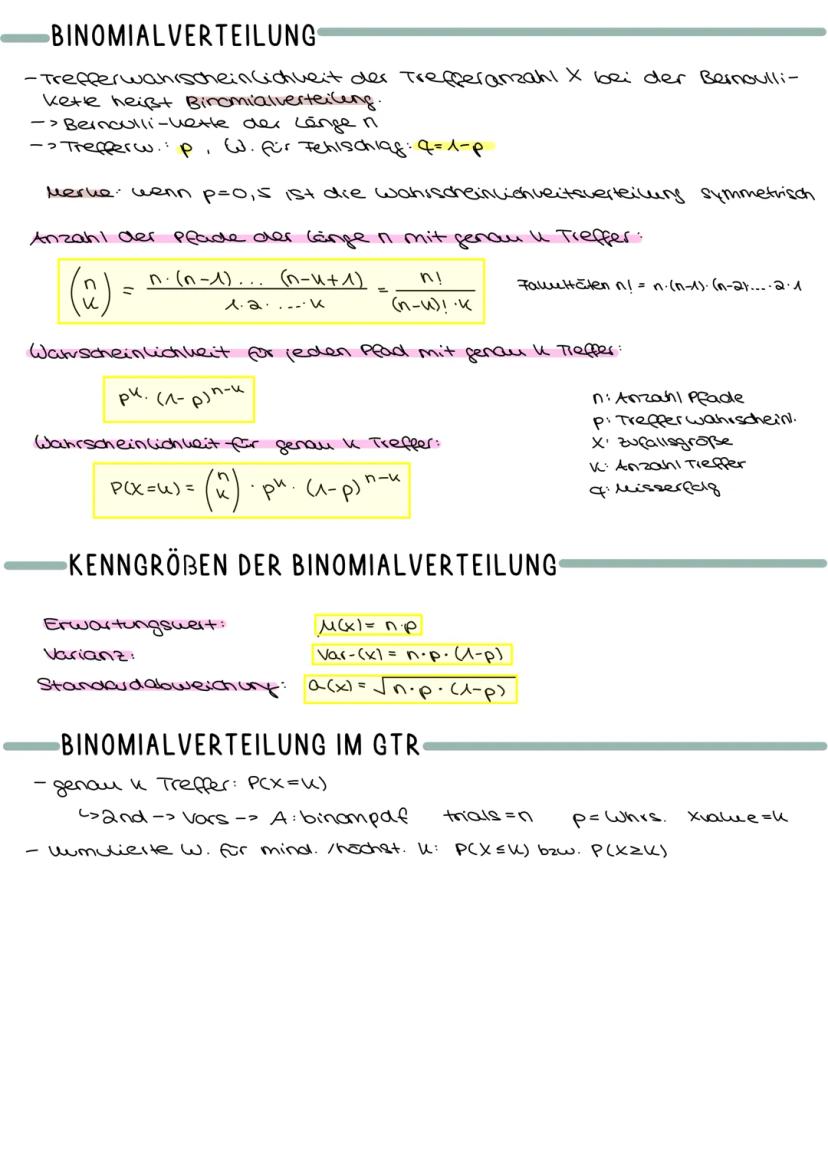 BINOMIALVERTEILUNG
- Trefferwahrscheinlichkeit der Trefferanzahl X bei der Bernoulli-
Kette heißt Binomialverteilung.
-> Bernoulli-Kette der Länge n
-> Trefferw.: p , W. für Fehlschlag: q=1-p
Merke: wenn p=0,5 ist die Wahrscheinlichkeitsverteilung symmetrisch
Anzahl der Pfade der Länge n mit genau k Treffer:
(n k) = n·(n-1)... (n-k+1) / 1·2· ....·k = n! / (n-k)!·k
Fakultäten n! = n·(n-1)·(n-2)·...·2·1
Wahrscheinlichkeit für jeden Pfad mit genau k Treffer:
p^k · (1-p)^n-k
n: Anzahl Pfade
p: Trefferwahrscheinl.
X: Zufallsgröße
k: Anzahl Treffer
q: Misserfolg
Wahrscheinlichkeit für genau k Treffer:
P(X=k) = (n k) · p^k · (1-p)^n-k
KENNGRÖßEN DER BINOMIALVERTEILUNG
Erwartungswert: μ(x) = n·p
Varianz: Var-(x) = n·p·(1-p)
Standardabweichung: σ(x) = √n·p·(1-p)
BINOMIALVERTEILUNG IM GTR
- genau k Treffer: P(X=k)
↳2nd -> Vars -> A: binompdf trials=n p= Whrs. xvalue=k
- kumulierte W. für mind. /höchst. k: P(X≤k) bzw. P(X≥k)